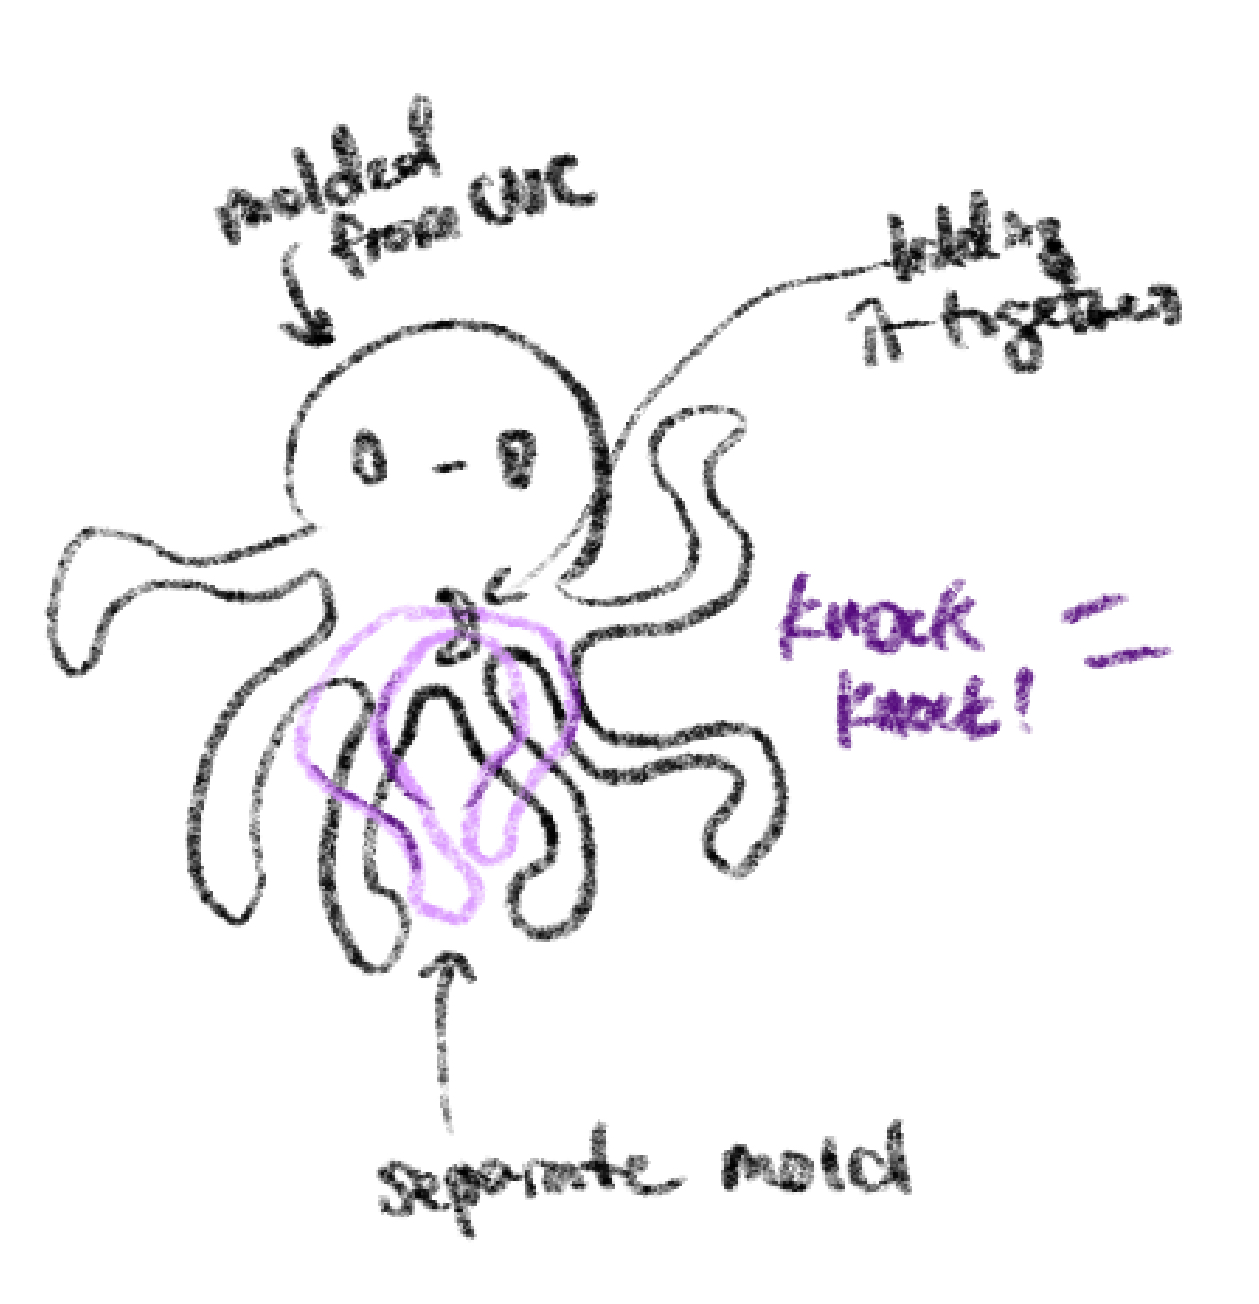 molded
from CNC
holding
together
knock
knock!
separate mold